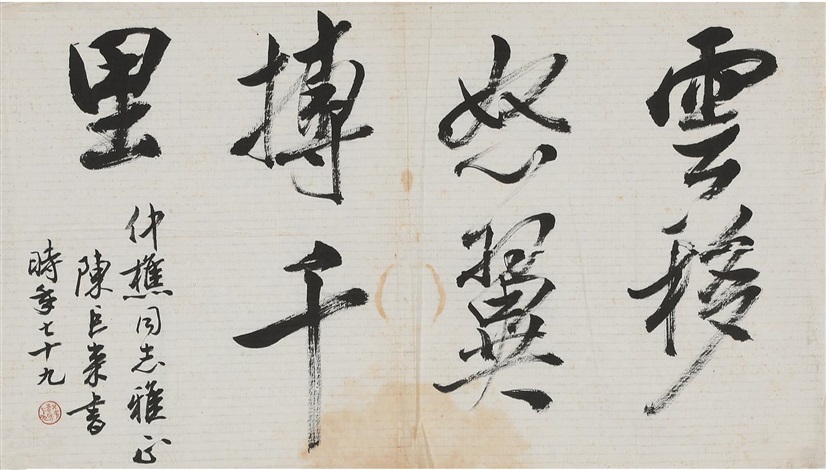 雲移
怒翼
搏千
里
仲樵同志雅正
陳巨來書
時年七十九